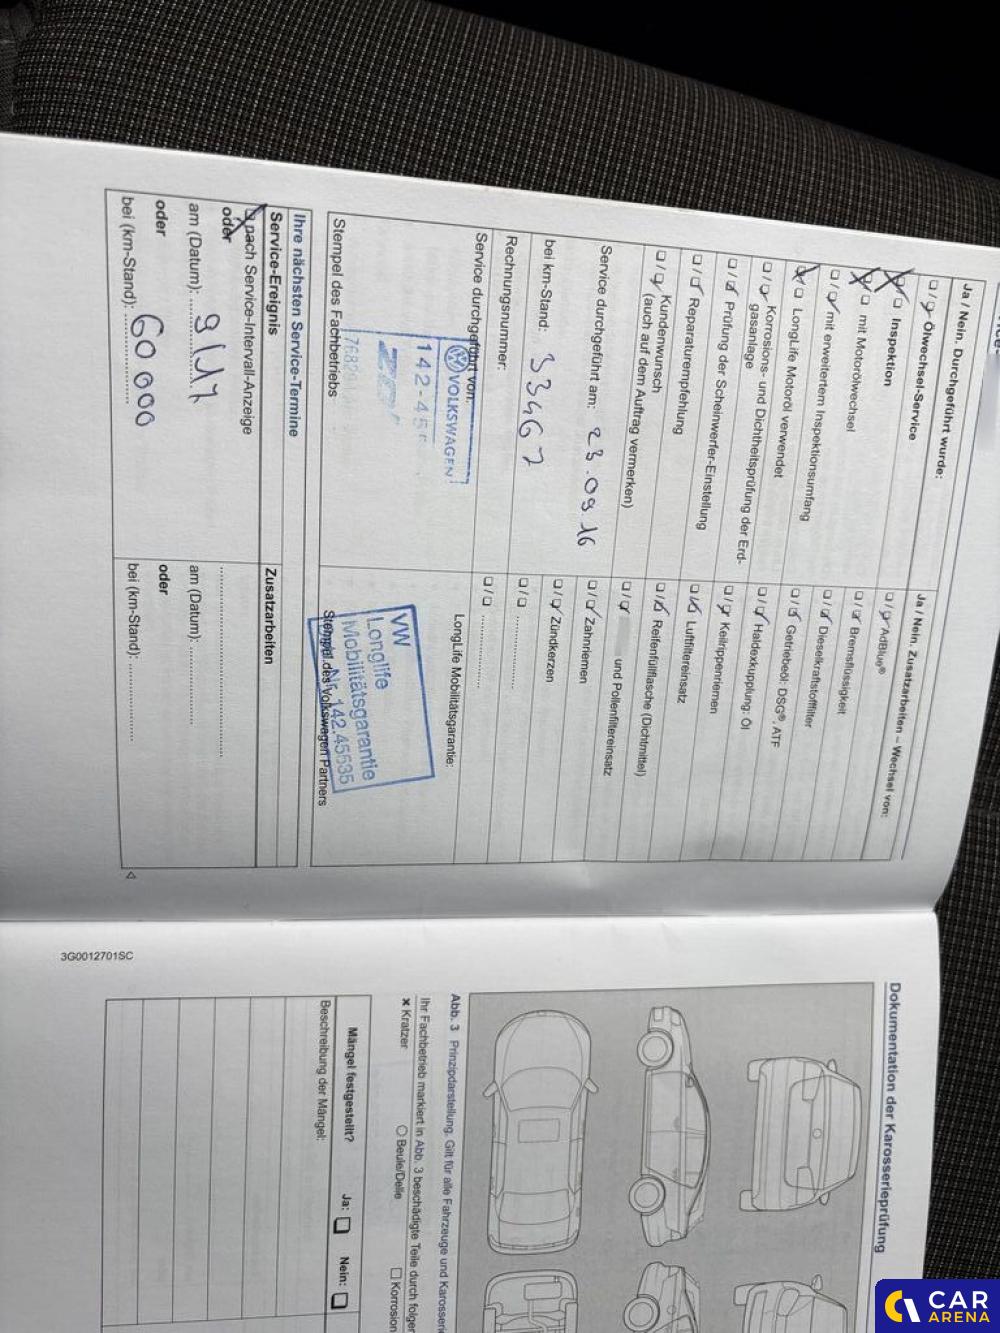 Ja / Nein. Durchgeführt wurde:
Ölwechsel-Service
Inspektion
mit Motorölwechsel
mit erweitertem Inspektionsumfang
LongLife Motoröl verwendet
Korrosions- und Dichtheitsprüfung der Erd-
gasanlage
Prüfung der Scheinwerfer-Einstellung
Reparaturempfehlung
Kundenwunsch
(auch auf dem Auftrag vermerken)
Service durchgeführt am: 23.09.16
bei km-Stand: 33467
Rechnungsnummer:
Service durchgeführt von:
VOLKSWAGEN
Stempel des Fachbetriebs
Ja / Nein. Zusatzarbeiten – Wechsel von:
AdBlue®
Bremsflüssigkeit
Dieselkraftstofffilter
Getriebeöl: DSG®, ATF
Haldexkupplung: Öl
Keilrippenriemen
Luftfiltereinsatz
Reifenfüllflasche (Dichtmittel)
und Pollenfiltereinsatz
Zahnriemen
Zündkerzen
LongLife Mobilitätsgarantie:
VW
Longlife
Mobilitätsgarantie
Nr. 142.45535
Stempel des Volkswagen Partners
Ihre nächsten Service-Termine
Service-Ereignis
nach Service-Intervall-Anzeige
oder
am (Datum): 9/17
oder
bei (km-Stand): 60 000
Zusatzarbeiten
am (Datum):
oder
bei (km-Stand):
3G0012701SC
Dokumentation der Karosserieprüfung
Abb. 3 Prinzipdarstellung. Gilt für alle Fahrzeuge und
Ihr Fachbetrieb markiert in Abb. 3 beschädigte Teile durch
x Kratzer
Beule/Delle
Korrosion
Mängel festgestellt? Ja: Nein:
Beschreibung der Mängel:
CAR
ARENA